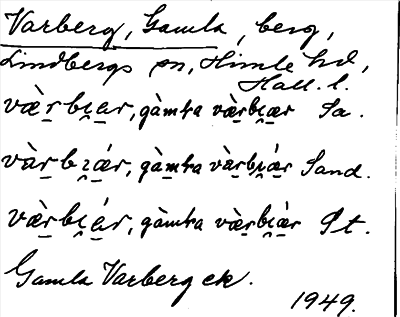 Varberg, Gamla, berg,
Lindbergs sn, Himle hd,
Hall. l.
væ̀r̠bi̯a̠r, gàmɫa væ̀r̠bi̯a̠r Sa.
væ̀r̠bi̯a̠r, gàmɫa væ̀r̠bi̯a̠r Sand.
væ̀r̠bi̯a̠r, gàmɫa væ̀r̠bi̯a̠r St.
Gamla Varberg ek.
1949.